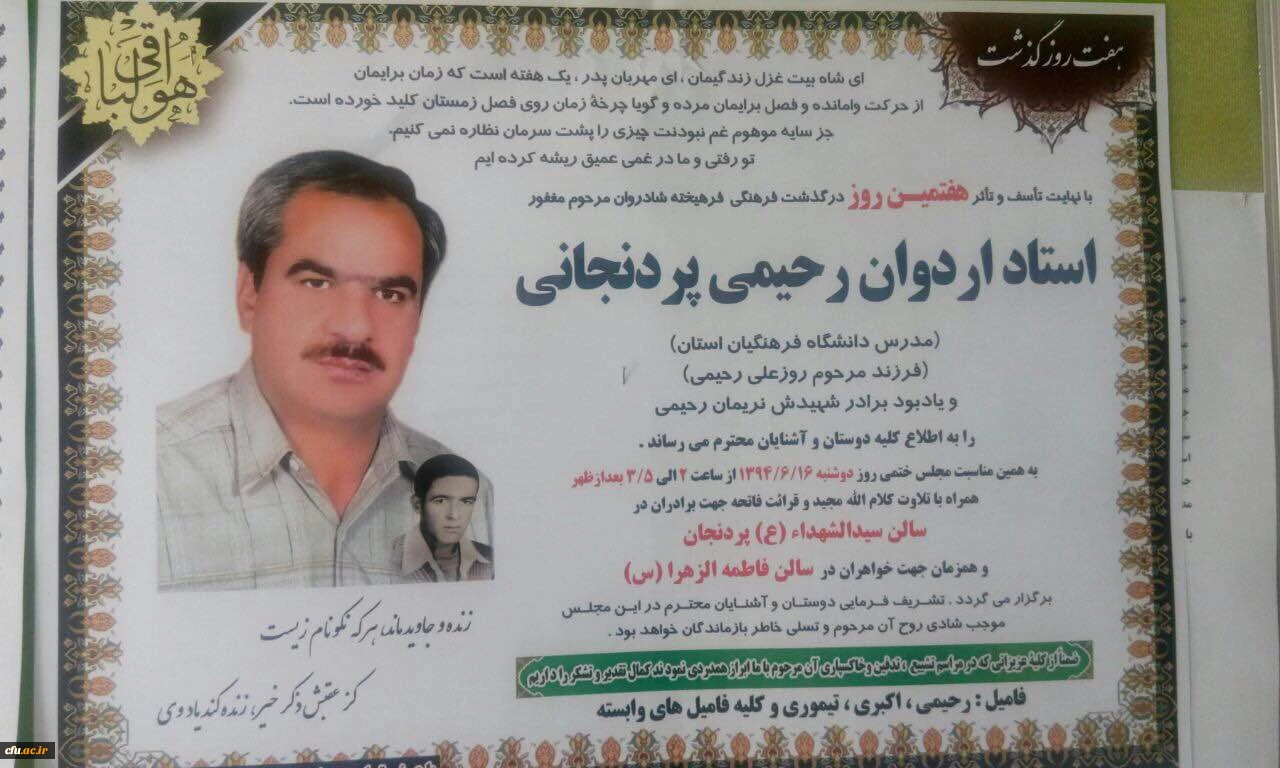 هفت روز گذشت
هوالباقی
ای شاه بیت غزل زندگیمان ، ای مهربان پدر ، یک هفته است که زمان برایمان
از حرکت وامانده و فصل برایمان مرده و گویا چرخهٔ زمان روی فصل زمستان کلید خورده است.
جز سایه موهوم غم نبودنت چیزی را پشت سرمان نظاره نمی کنیم.
تو رفتی و ما در غمی عمیق ریشه کرده ایم
با نهایت تأسف و تأثر هفتمین روز درگذشت فرهنگی فرهیخته شادروان مرحوم مغفور
استاد اردوان رحیمی پردنجانی
(مدرس دانشگاه فرهنگیان استان)
(فرزند مرحوم روزعلی رحیمی)
و یادبود برادر شهیدش نریمان رحیمی
را به اطلاع کلیه دوستان و آشنایان محترم می رساند .
به همین مناسبت مجلس ختمی روز دوشنبه ۱۳۹۴/۶/۱۶ از ساعت ۲ الی ۳/۵ بعدازظهر
همراه با تلاوت کلام الله مجید و قرائت فاتحه جهت برادران در
سالن سیدالشهداء (ع) پردنجان
و همزمان جهت خواهران در سالن فاطمه الزهرا (س)
برگزار می گردد . تشریف فرمایی دوستان و آشنایان محترم در این مجلس
موجب شادی روح آن مرحوم و تسلی خاطر بازماندگان خواهد بود .
ضمناً از کلیهٔ عزیزانی که در مراسم تشییع ، تدفین و خاکسپاری آن مرحوم با ما ابراز همدردی نمودند کمال تقدیر و تشکر را داریم
فامیل : رحیمی ، اکبری ، تیموری و کلیه فامیل های وابسته
زنده و جاوید ماند، هر که نکونام زیست
کز عقبش ذکر خیر، زنده کند یاد وی
cfu.ac.ir